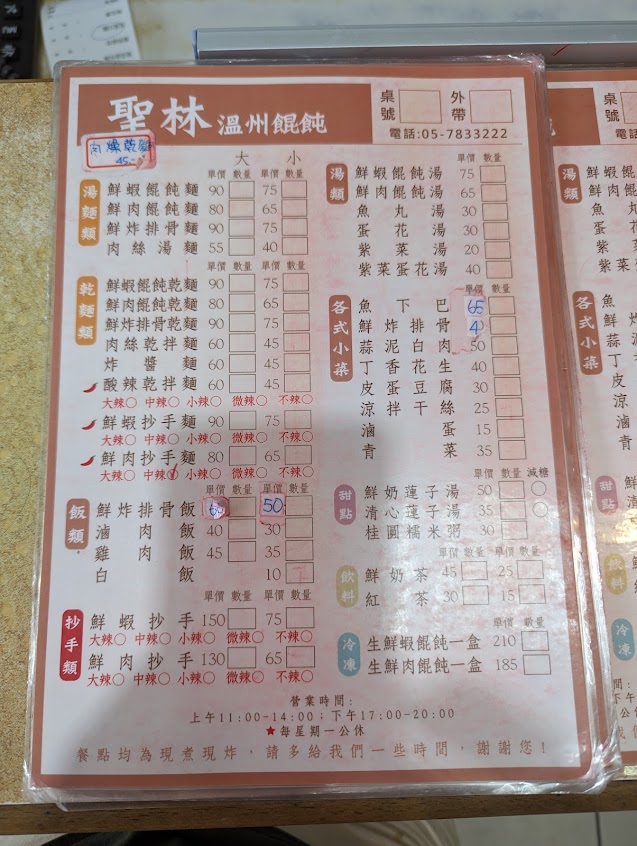 聖林 溫州餛飩
桌號 外帶
電話:05-7833222
45.-
大 小
單價 數量 單價 數量
湯麵類
鮮蝦餛飩麵 90 75
鮮肉餛飩麵 80 65
鮮炸排骨麵 90 75
肉絲湯麵 55 40
單價 數量 單價 數量
乾麵類
鮮蝦餛飩乾麵 90 75
鮮肉餛飩乾麵 80 65
鮮炸排骨乾麵 90 75
肉絲乾拌麵 60 45
炸醬麵 60 45
酸辣乾拌麵 60 45
大辣○ 中辣○ 小辣○ 微辣○ 不辣○
鮮蝦抄手麵 90 75
大辣○ 中辣○ 小辣○ 微辣○ 不辣○
鮮肉抄手麵 80 65
大辣○ 中辣○ 小辣○ 微辣○ 不辣○
單價 數量 單價 數量
飯類
鮮炸排骨飯 50
滷肉飯 40 30
雞肉飯 45 35
白飯 10
單價 數量 單價 數量
抄手類
鮮蝦抄手 150 75
大辣○ 中辣○ 小辣○ 微辣○ 不辣○
鮮肉抄手 130 65
大辣○ 中辣○ 小辣○ 微辣○ 不辣○
單價 數量
湯類
鮮蝦餛飩湯 75
鮮肉餛飩湯 65
魚丸湯 30
蛋花湯 30
紫菜湯 20
紫菜蛋花湯 40
單價 數量
各式小菜
魚下巴 65
鮮炸排骨
蒜泥白肉 50
丁香花生 40
皮蛋豆腐 30
涼拌干絲 25
滷蛋 15
青菜 35
單價 數量 減糖
甜點
鮮奶蓮子湯 50 ○
清心蓮子湯 35 ○
桂圓糯米粥 30
單價 數量 單價 數量
飲料
鮮奶茶 45 25
紅茶 30 15
單價 數量
冷凍
生鮮蝦餛飩一盒 210
生鮮肉餛飩一盒 185
營業時間:
上午11:00-14:00;下午17:00-20:00
★每星期一公休
餐點均為現煮現炸,請多給我們一些時間,謝謝您!